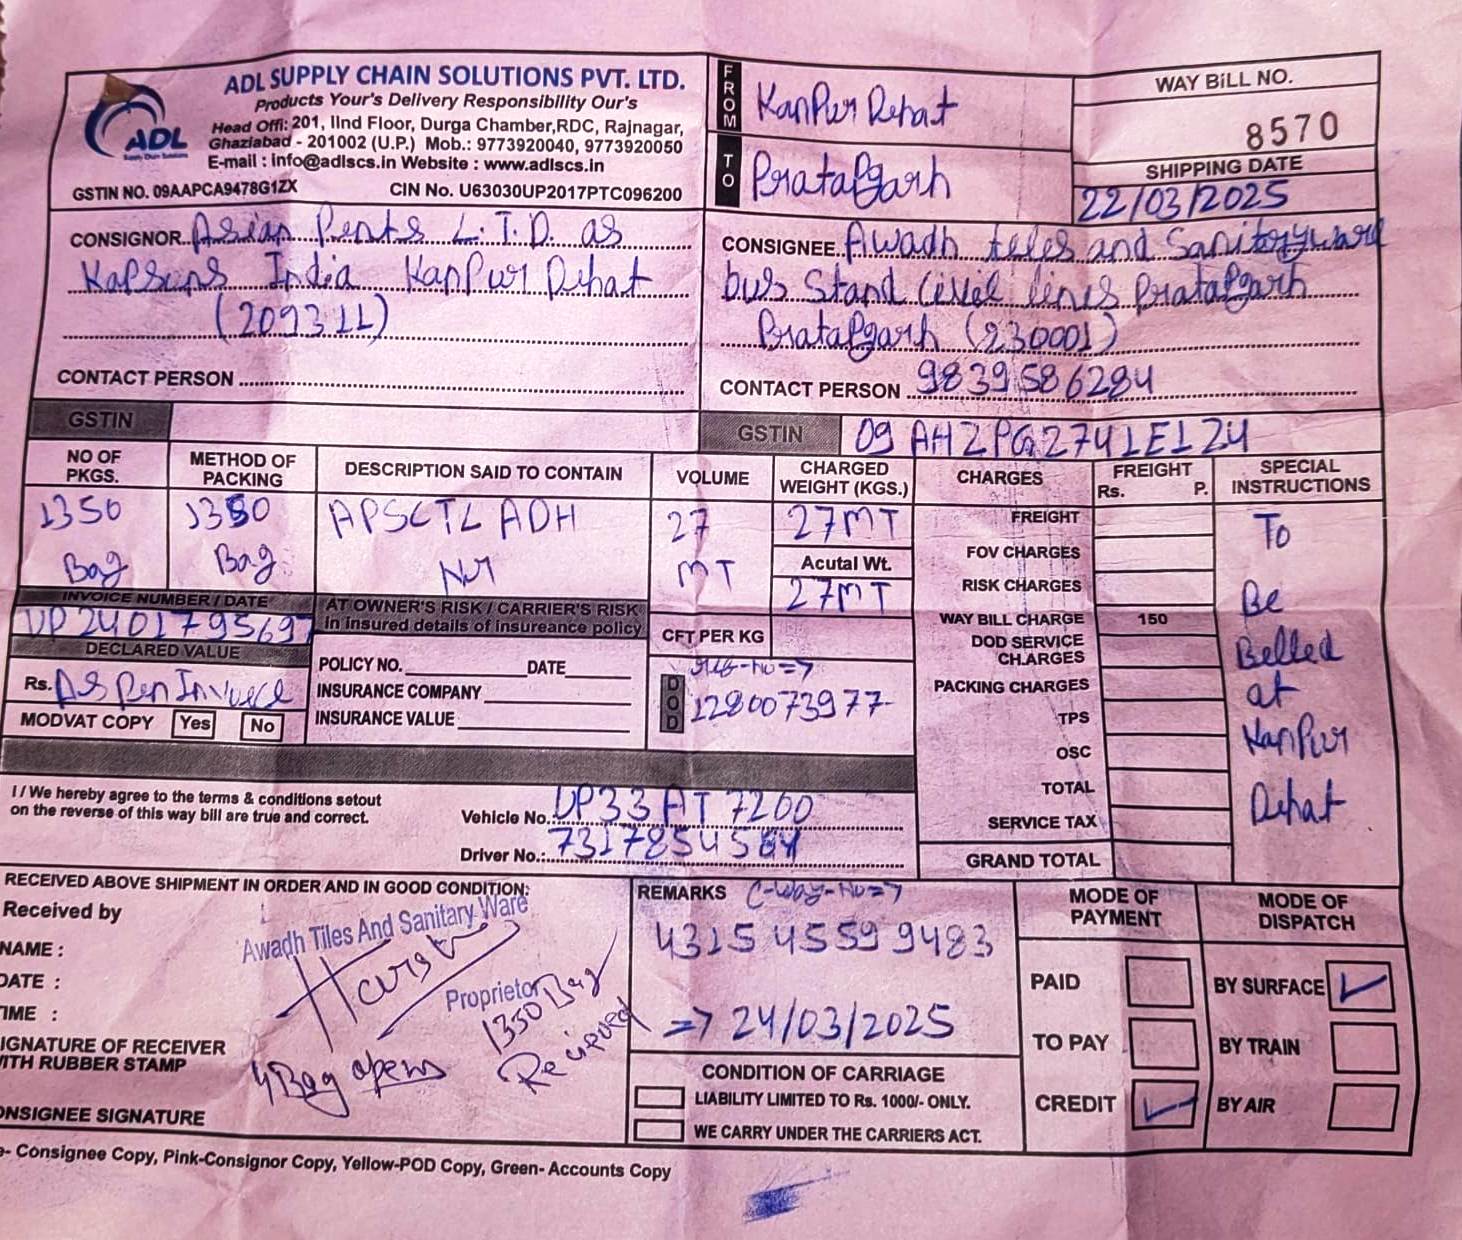 ADL SUPPLY CHAIN SOLUTIONS PVT. LTD.
Products Your's Delivery Responsibility Our's
Head Offi: 201, IInd Floor, Durga Chamber,RDC, Rajnagar,
Ghaziabad - 201002 (U.P.) Mob.: 9773920040, 9773920050
E-mail : info@adlscs.in Website : www.adlscs.in
ADL
Supply Chain Solutions
GSTIN NO. 09AAPCA9478G1ZX CIN No. U63030UP2017PTC096200
FROM Kanpur Dehat
TO Pratapgarh
WAY BiLL NO.
8570
SHIPPING DATE
22/03/2025
CONSIGNOR Asian Pents L.T.D. as
Kapsons India Kanpur Dehat
(209311)
CONTACT PERSON
CONSIGNEE Awadh teles and Sanitoryward
bus Stand Civil lines Pratapgarh
Pratapgarh (230001)
CONTACT PERSON 9839586284
GSTIN
GSTIN 09 AHZPG2741E1Z4
NO OF PKGS. METHOD OF PACKING DESCRIPTION SAID TO CONTAIN VOLUME CHARGED WEIGHT (KGS.) CHARGES FREIGHT Rs. P. SPECIAL INSTRUCTIONS
1350 1350 APSCTL ADH 27 27MT
Bag Bag MT
Acutal Wt.
27MT
FREIGHT
FOV CHARGES
RISK CHARGES
WAY BILL CHARGE 150
DOD SERVICE CHARGES
PACKING CHARGES
TPS
OSC
TOTAL
SERVICE TAX
GRAND TOTAL
To
Be
Belled
at
Kanpur
Dehat
INVOICE NUMBER / DATE
UP2401795697
DECLARED VALUE
Rs. As Per Invoice
MODVAT COPY Yes No
AT OWNER'S RISK / CARRIER'S RISK
in insured details of insureance policy
POLICY NO. DATE
INSURANCE COMPANY
INSURANCE VALUE
CFT PER KG
DOD
1280073977
I / We hereby agree to the terms & conditions setout
on the reverse of this way bill are true and correct.
Vehicle No. UP33AT7200
Driver No.:
RECEIVED ABOVE SHIPMENT IN ORDER AND IN GOOD CONDITION:
Received by
NAME :
DATE :
TIME :
SIGNATURE OF RECEIVER
WITH RUBBER STAMP
CONSIGNEE SIGNATURE
Awadh Tiles And Sanitary Ware
Proprietor
1350 Bag
Recieved
4 Bag opens
REMARKS E-Way-No=>
4315 4559 9483
=> 24/03/2025
CONDITION OF CARRIAGE
LIABILITY LIMITED TO Rs. 1000/- ONLY.
WE CARRY UNDER THE CARRIERS ACT.
MODE OF PAYMENT
PAID
TO PAY
CREDIT
MODE OF DISPATCH
BY SURFACE
BY TRAIN
BY AIR
e- Consignee Copy, Pink-Consignor Copy, Yellow-POD Copy, Green- Accounts Copy